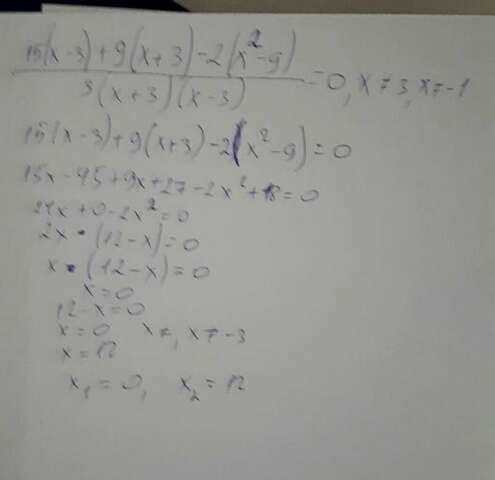 15(x-3)+9(x+3)-2(x²-9)
3(x+3)(x-3)
=0, x≠3, x≠-1
15(x-3)+9(x+3)-2(x²-9)=0
15x-45+9x+27-2x²+18=0
24x+0-2x²=0
2x·(12-x)=0
x·(12-x)=0
x=0
12-x=0
x=0 x≠, x≠-3
x=12
x₁=0, x₂=12